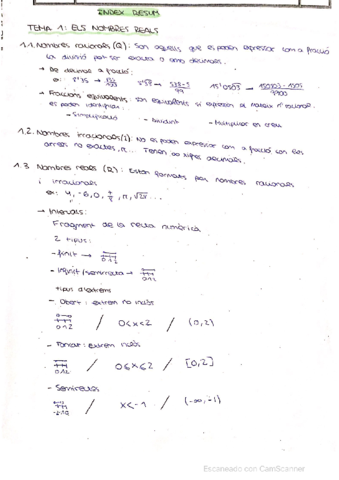 ÍNDEX RESUM
TEMA 1: ELS NOMBRES REALS
1.1. Nombres racionals (Q): Són aquells que es poden expressar com a fracció
La divisió pot ser exacta o amb decimals.
→ De decimals a fracció:
→ Fraccions equivalents: són equivalents si expressen el mateix nº racional.
es poden identificar:
- Simplificació - Dividint - Multiplicar en creu
1.2. Nombres irracionals (I): No es poden expressar com a fracció són les
arrels no exactes, π... Tenen ∞ xifres decimals.
1.3 Nombres reals (R): Estan formats pels nombres racionals
i irracionals
→ Intervals:
Fragment de la recta numèrica
2 tipus:
- finit →
- infinit/semirecta →
tipus d'extrems
- Obert: extrem no inclòs
012 / 0<x<2 / (0,2)
- Tancat: extrem inclòs
012 / 0≤x≤2 / [0,2]
- Semirectes
/ x<-1 / (-∞,-1)
Escaneado con CamScanner